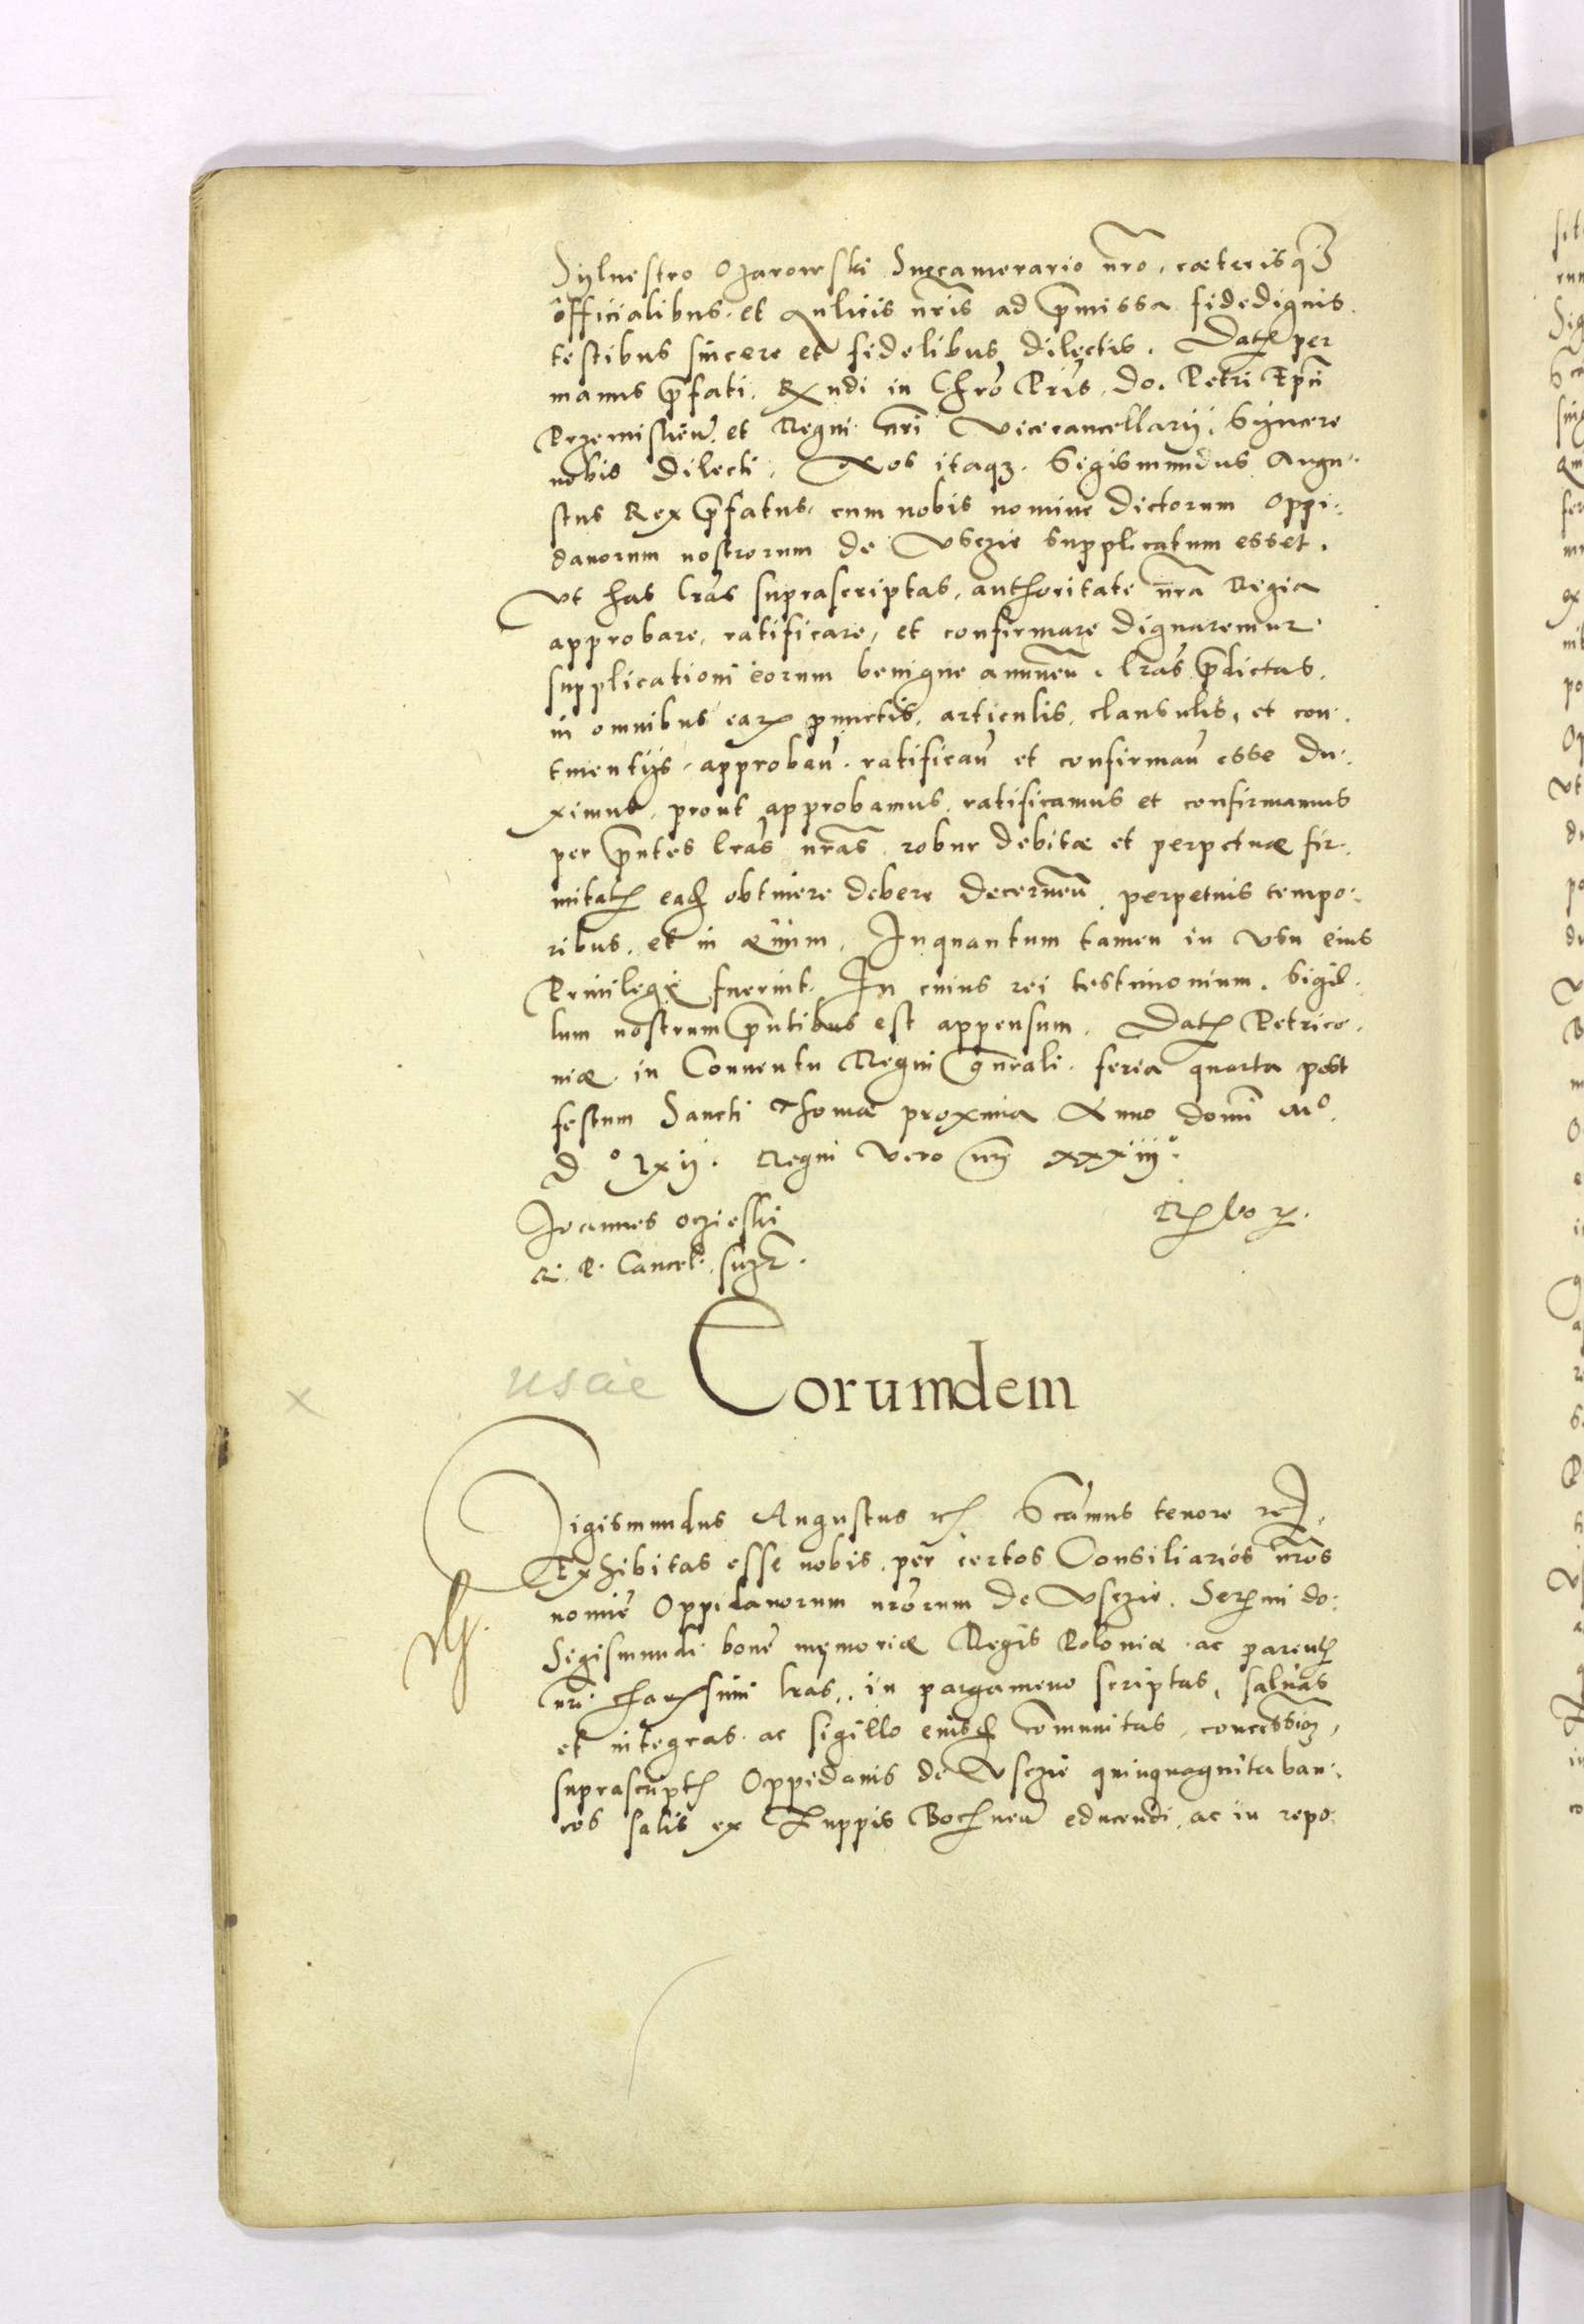 Sylvestro Ozarowski Succamerario nro, caeterisqз
officialibus et aulicis nris ad pmissa fidedignis
testibus sincere et fidelibus dilectis. Dat per
manus pfati Rndi in Chro Pris. do. Petri Epi
Przemislien et Regni nri Vicecancellarij. Syncere
nobis dilecti. Nos itaqз Sigismundus Augu
stus Rex pfatus, cum nobis nomine dictorum oppi
danorum nostrorum de Usczie supplicatum esset.
Ut has lras suprascriptas, authoritate nra Regia
approbare, ratificare, et confirmare dignaremur
supplicationi eorum benigne annuen. lras pdictas.
in omnibus ear punctis, articulis, clausulis, et con
tinentijs, approban. ratifican et confirman esse du
ximus, prout approbamus, ratificamus et confirmamus
per pntes lras nras robur debitae et perpetuae fir
mitat ead obtinere debere decernen perpetuis tempo
ribus, et in aevum. Inquantum tamen in usu eius
Privilegij fuerint. In cuius rei testimonium. Sigil
lum nostrum pntibus est appensum. Dat Petrico
viae in Conventu Regni gnrali feria quarta post
festum Sancti Thomae proxima Anno domi Mo.
D o lxij. Regni vero nri xxxiijo.
Joannes oczieski
R. P. Cancel. supr.
Eorumdem
uscie
x
Sigismundus Augustus rc. Scamus tenore rc.
Exhibitas esse nobis per certos Consiliarios nros
nomie Oppidanorum nrorum de Usczie. Sermi do.
Sigismundi bone memoriae Regis Poloniae ac parent
nri charissimi lras, in pargameno scriptas, salvas
et integras ac sigillo eiusd communitas, concession
suprascript Oppidanis de Usczie quinquaginta ban
cos salis ex Zuppis Bochnen educendi, ac in repo